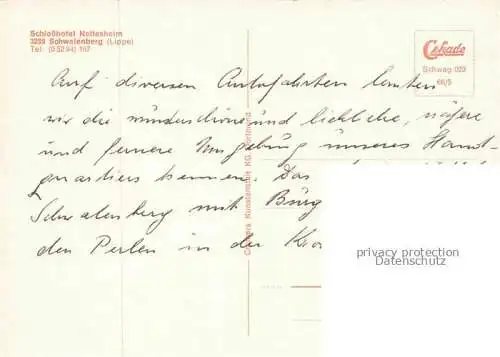 Schloßhotel Nottesheim
3283 Schwalenberg (Lippe)
Tel. (05294) 167
Cekade
Schwag 023
66/5
Auf diversen Autofahrten lernten
wir die wunderschöne und liebliche, nähere
und fernere Umgebung unseres Haupt-
quartiers kennen. Das
Schwalenberg mit Burg
den Perlen in der
Cramers Kunstanstalt KG, Dortmund
privacy protection
Datenschutz